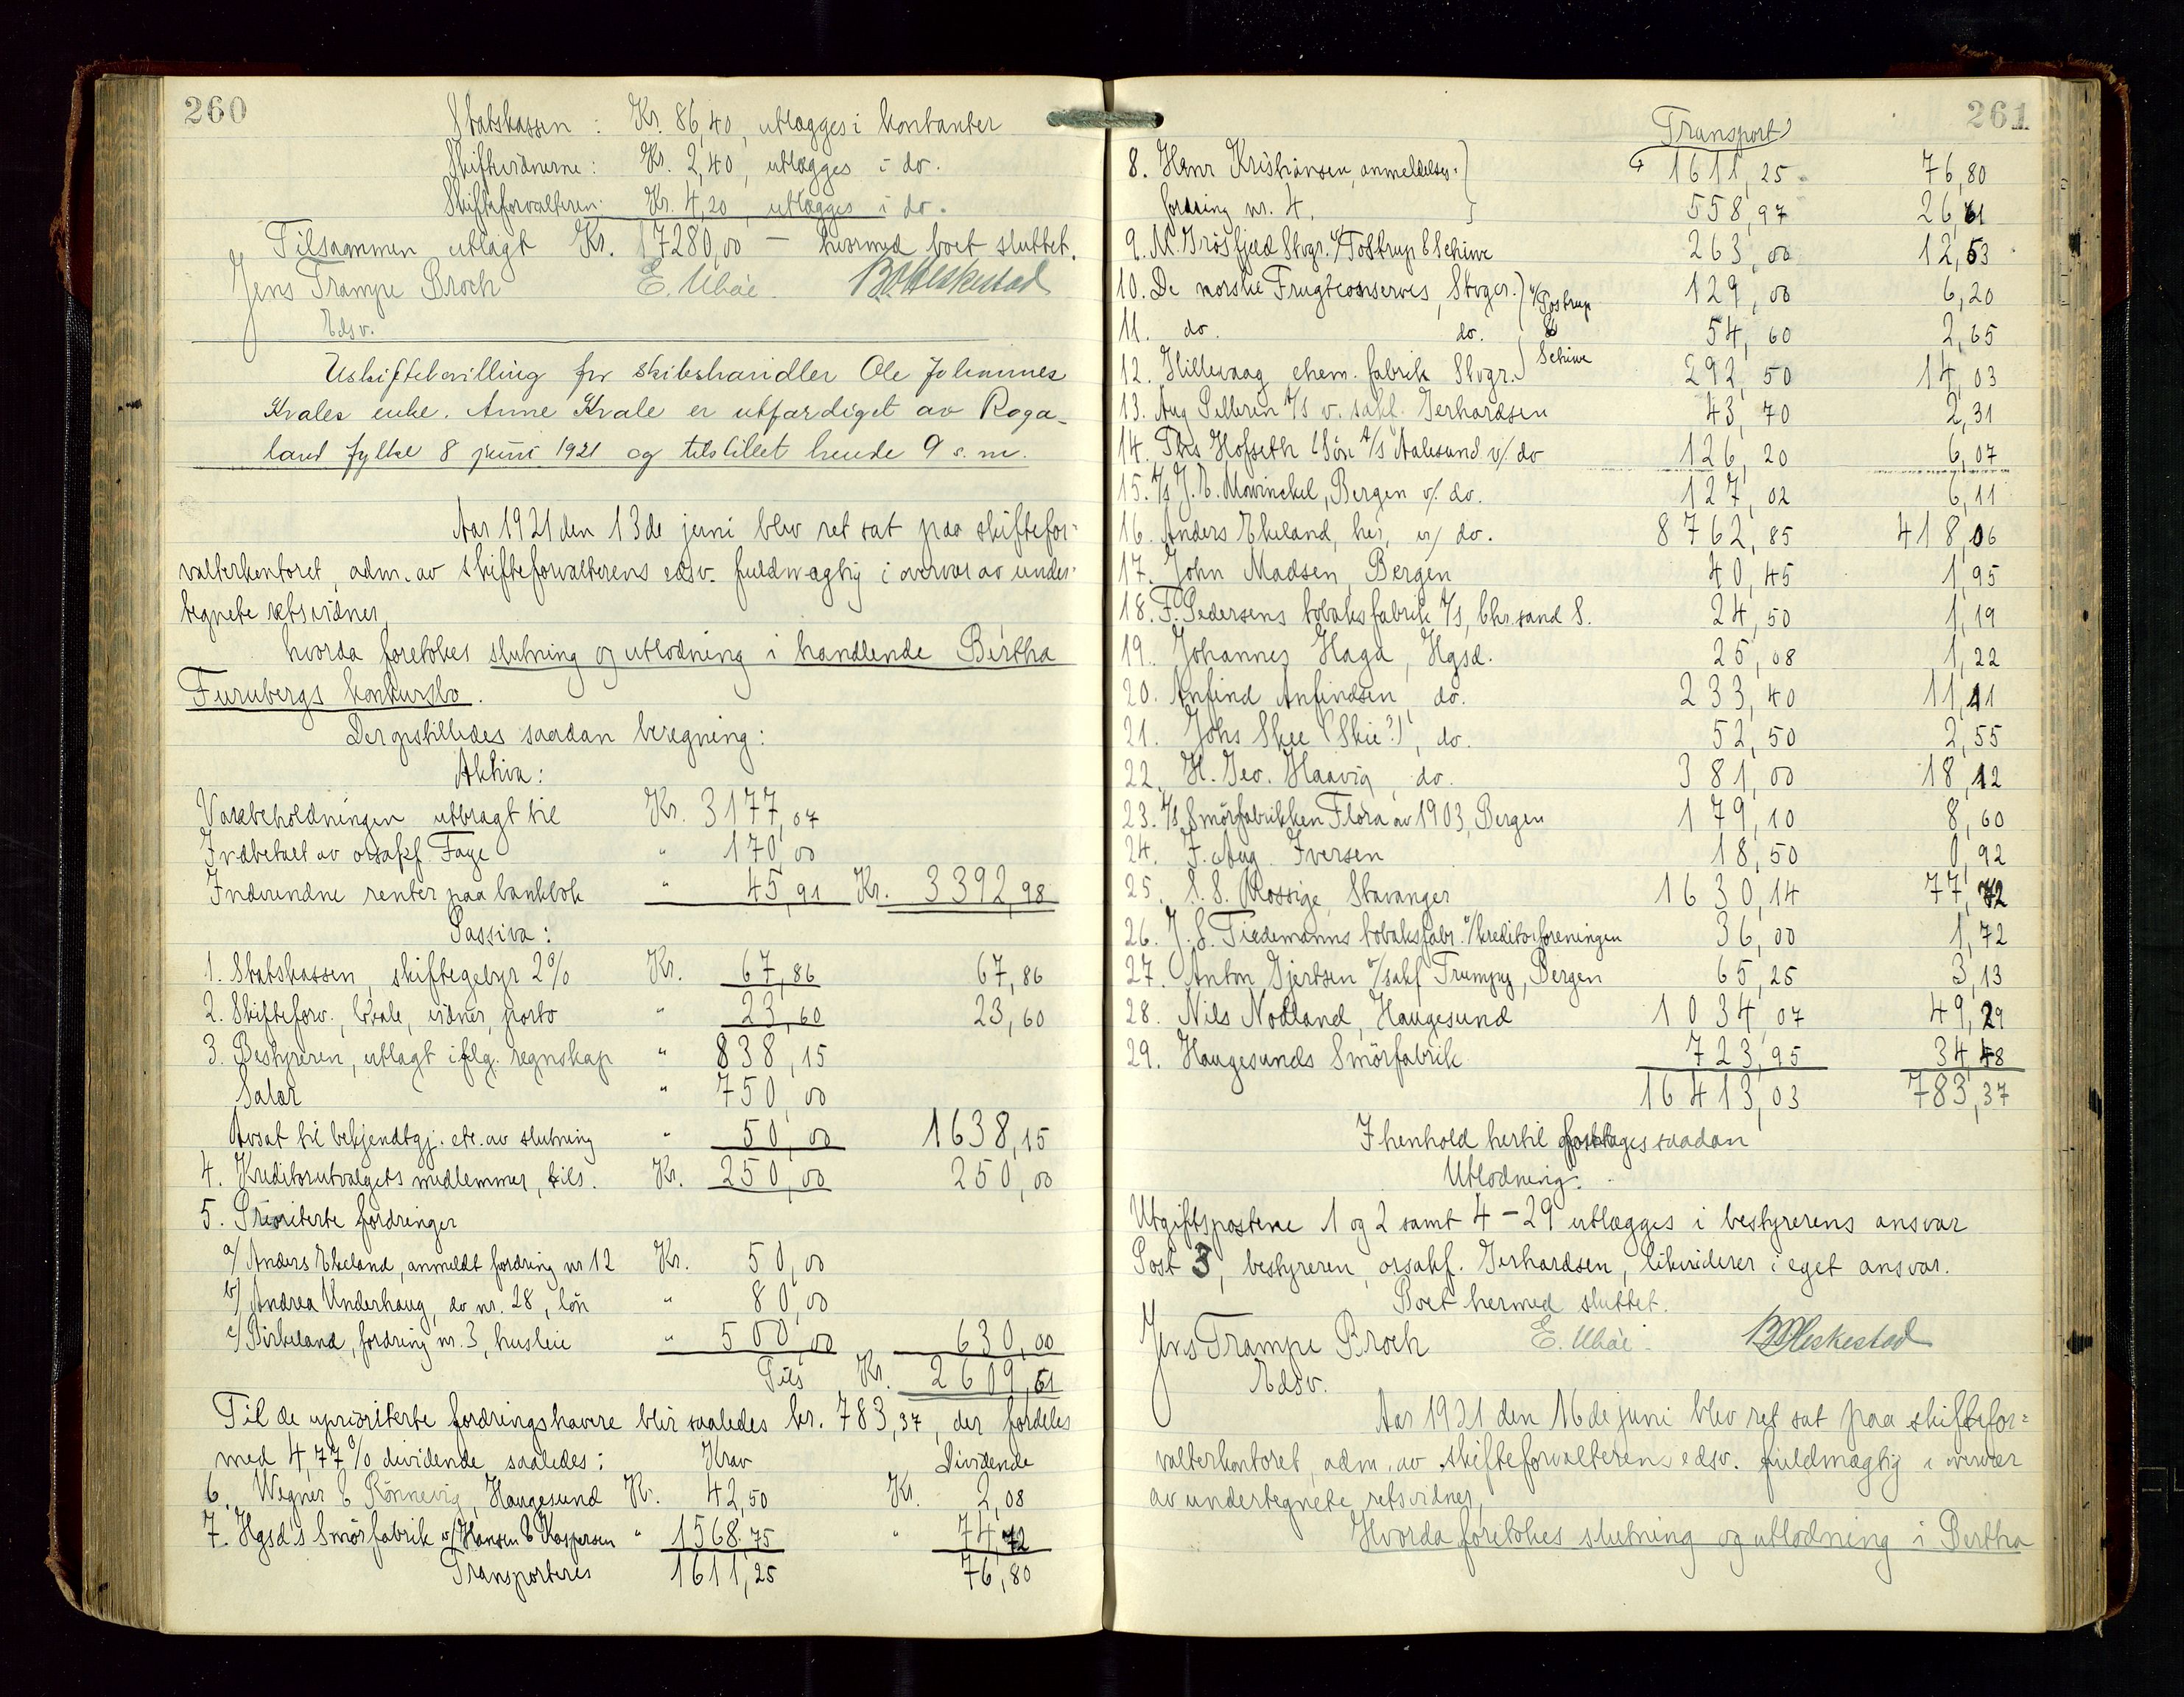 260
Statskassen : Kr. 86,40, utlægges i kontanter
Skiftevidnerne : Kr. 2,40, utlægges i do.
Skifteforvalteren: Kr. 4,20, utlægges i do.
Tilsammen utlagt Kr. 17280,00 — hvormed boet sluttet.
Jens Trampe Broch E. Ubøe B. Heskestad
Edsv.
Uskiftebevilling for skibshandler Ole Johannes
Kvales enke. Anne Kvale er utfærdiget av Roga-
land fylke 8 juni 1921 og tilstillet hende 9 s. m.
Aar 1921 den 13de juni blev ret sat paa skiftefor-
valterkontoret, adm. av skifteforvalterens edsv. fuldmægtig i overvær av under-
tegnete retsvidner,
hvorda foretokes slutning og utlodning i handlende Bertha
Furubergs konkursbo.
Der opstilledes saadan beregning:
Aktiva:
Varebeholdningen utbragt til Kr. 3177,07
Indbetalt av orsakf. Faye " 170,00
Indvundne renter paa bankbok " 45,91 Kr. 3392,98
Passiva:
1. Statskassen, skiftegebyr 2% Kr. 67,86 67,86
2. Skifteforv., lokale, vidner, porto " 23,60 23,60
3. Bestyreren, utlagt iflg. regnskap " 838,15
Salær " 750,00
Avsat til bekjendtgj. etc. av slutning " 50,00 1638,15
4. Kreditorutvalgets medlemmer, tils. Kr. 250,00 250,00
5. Prioriterte fordringer
a/ Anders Ekeland, anmeldt fordring nr 12 Kr. 50,00
b/ Andrea Underhaug, do nr. 28, løn " 80,00
c/ Birkeland, fordring nr. 3, husleie " 500,00 630,00
Tils Kr. 2609,61
Til de uprioriterte fordringshavere blir saaledes kr. 783,37, der fordeles
med 4,77% dividende saaledes: Krav Dividende
6. Wegner & Rønnevig, Haugesund Kr. 42,50 Kr. 2,08
7. Hgsd's Smörfabrik v/Hansen & Kaspersen " 1568,75 " 74,72
Transporteres 1611,25 76,80
261
Transport
1611,25 76,80
8. Henr Kristiansen, anmeldelses-
fordring nr. 4. 558,97 26,61
9. M. Grösfjeld Stvgr. v/Tostrup & Schiwe 263,00 12,53
10. De norske Frugtconserves, Stvgr. v/Tostrup 129,00 6,20
11. do. do. & 54,60 2,65
12. Hillevaag chem. fabrik Stvgr. Schiwe 292,50 14,03
13. Aug Pellerin A/S v. sakf. Gerhardsen 43,70 2,31
14. Ths Hofseth & Sön A/S Aalesund v/ do 126,20 6,07
15. A/S J. E. Mowinckel, Bergen v/. do. 127,02 6,11
16. Anders Ekeland, her, v/ do. 8762,85 418,06
17. John Madsen, Bergen 40,45 1,95
18. F. Pedersens tobaksfabrik A/S, Chr.sand S. 24,50 1,19
19. Johannes Haga, Hgsd. 25,08 1,22
20. Anfind Anfindsen, do. 233,40 11,11
21. Johs Skee (Skie?), do. 52,50 2,55
22. H. Geo. Haavig, do. 381,00 18,12
23. A/S Smörfabrikken Flora av 1903, Bergen 179,10 8,60
24. F. Aug. Iversen 18,50 0,92
25. S. S. Rossige, Stavanger 1630,14 77,72
26. J. L. Tiedemanns tobaksfabr. v/kreditorforeningen 36,00 1,72
27. Anton Gjertsen v/sakf Trumpy, Bergen 65,25 3,13
28. Nils Nodland, Haugesund 1034,07 49,29
29. Haugesunds Smörfabrik 723,95 34,48
16413,03 783,37
I henhold hertil foretages saadan
Utlodning:
Utgiftspostene 1 og 2 samt 4 – 29 utlægges i bestyrerens ansvar
Post 3, bestyreren, orsakf. Gerhardsen, likviderer i eget ansvar.
Boet hermed sluttet.
Jens Trampe Broch E. Ubøe B. Heskestad
Edsv.
Aar 1921 den 16de juni blev ret sat paa skiftefor-
valterkontoret, adm. av skifteforvalterens edsv. fuldmægtig i overvær
av undertegnete retsvidner,
Hvorda foretokes slutning og utlodning i Bertha